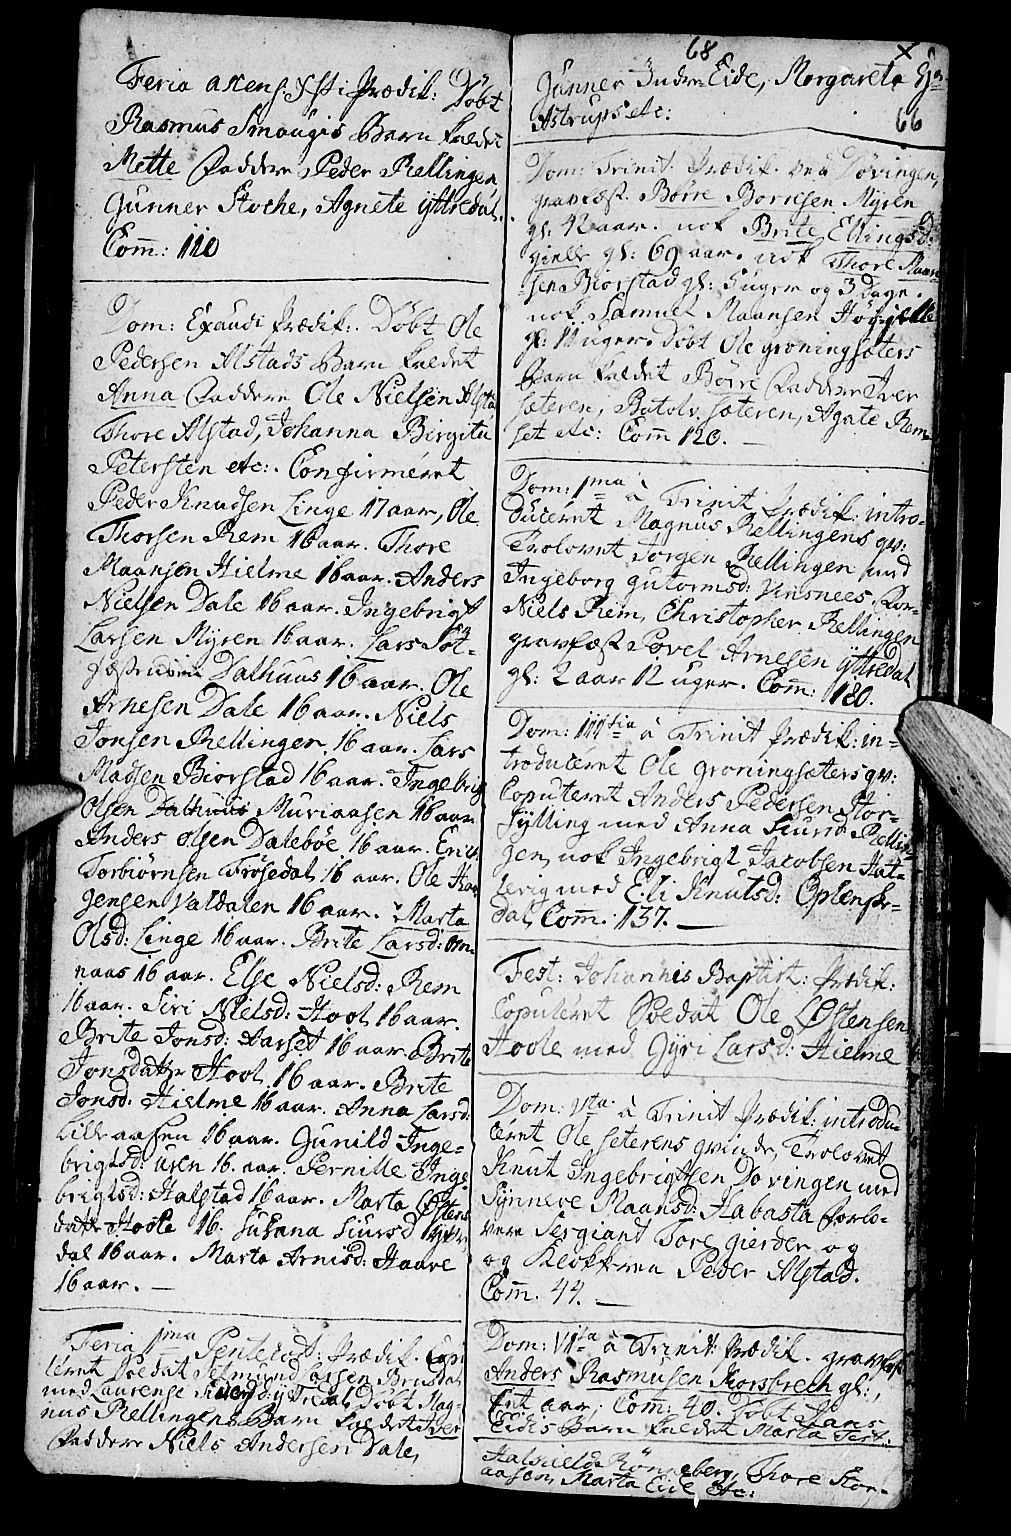 Feria ascens: Xsti Prædik: Döbt
Rasmus Smougis Barn kaldet
Mette Faddere Peder Rellingen
Gunner Stoche, Agnete yttredal.
Com̄: 110
Dom: Exaudi Prædik:. Döbt Ole
Pedersen Alstads Barn kaldet
Anna Faddere Ole Nielsen Alsta
Thore Alstad, Johanna Birgita
Petersten etc:. Confirmeret
Peder Knudsen Linge 17 aar, Ole
Thorsen Rem 16 aar. Thore
Maansen Hielme 16 aar. Anders
Nielsen Dale 16 aar. Ingebrigt
Larsen Myren 16 aar. Lars
Dalhuus 16 aar. Ole
Arnesen Dale 16 aar. Niels
Jonsen Rellingen 16 aar. Lars
Madsen Biorstad 16 aar. Ingebrig
Olsen Dalhuus Muriaasen 16 aar
Anders Olsen Dalebøe 16 aar. Eric
Torbiörnsen Frösedal 16 aar. Ole
Jensen Valdalen 16 aar. Marta
Olsd: Linge 16 aar. Brite Larsd: om-
naas 16 aar. Else Nielsd: Rem
16 aar. Siri Nielsd: Hool 16 aar.
Brite Jonsd: Aarset 16 aar. Brite
Jonsdatter Hool 16 aar. Brite
Jonsd: Hielme 16 aar. Anna Larsd:
Lilleaasen 16 aar. Gunild Inge-
brigtsd: uren 16. aar. Pernille Inge-
brigtsd: Halstad 16 aar. Marta Østens
datt Hoole 16. Susana Siursd yttre
dal 16 aar. Marta Arnisd: Haare
16 aar. —
Feria 1ma Pentecost: Prædik. Copu
leret Soldat Larsen Brusdal
med Laurense yttredal Döbt Mag-
nus Rellingens Barn kaldet Iver
Faddere Niels Andersen Dale,
68 X
Gunner Indre Eide, Margareta
Astrups etc:
66
Dom: Trinit. Prædik. ved Døvingen,
gravfæst Börre Börresen Myren
gl: 42 aar. nok Brite Ellingsd
gielle gl: 69 aar. nok Thore Maan
sen Biorstad gl: 5 uger og 3 Dage.
nok Samuel Maansen Høgielle
gl: 11 uger. Döbt Ole groningsæters
Barn kaldet Börre Faddere Iver
sæteren, Botolv sæteren, Agate Rem
set etc: Com̄ 120. —
Dom: 1ma à Trinit Prædik: intro-
duceret Magnus Rellingens qv:
Trolovet Jörgen Rellingen med
Ingeborg gutormsd: Vinsnees. For-
Niels Rem, Christopher Rellingen
gravfæst Povel Arnesen yttredal
gl: 2 aar 12 uger. Com̄: 180.
Dom: IIItia à Trinit Prædik: in-
troduceret Ole groningsæters qv:
Copuleret Anders Pedersen Stor-
fylling med Anna Siursd Rellin
gen, nok Ingebrigt Jacobsen Hat-
levig med Eli Knutsd: Oplensk-
dal Com̄: 137. —
Fest: Johannis Baptist: Prædik:
Copuleret Soldat Ole Østensen
Hoole med Gyri Larsd: Hielme
Dom: Vta à Trinit Prædik: introdu-
ceret Ole seterens qvinde, Trolovet
Knut Ingebrigtsen Døvingen med
Synneve Maansd: Habasta forlo-
vere Sergiant Tore gierder og
og Klokkeren Peder Alstad.
Com̄. 44. —
Dom: VIta à Trinit: Prædik. gravfæst
Anders Rasmusen Korsbrech gl:,
aar. Com: 40. Döbt Hans
Eidis Barn kaldet Marta Test:
Rönneberg, Thore Stor-
aasen, Marta Eide etc: